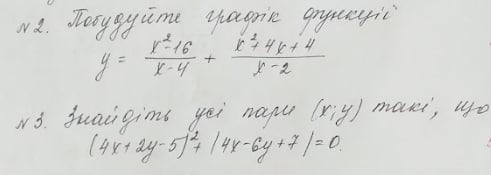 №2. Побудуйте графік функції
y = (x²-16)/(x-4) + (x²+4x+4)/(x-2)
№3. Знайдіть усі пари (x;y) такі, що
(4x+2y-5)²+|4x-6y+7|=0.